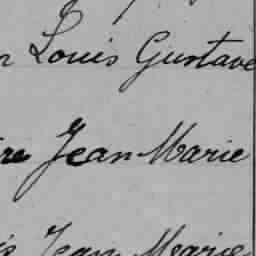 Louis Gustave
Jean Marie
Jean Marie